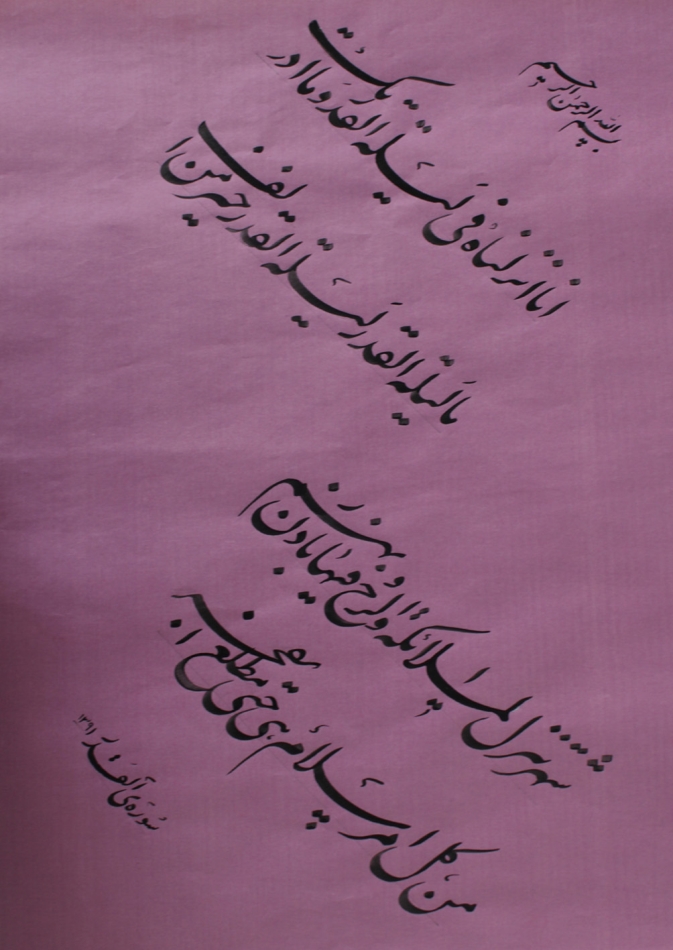 بسم الله الرحمن الرحیم
انا انزلناه فی لیلة القدر و ما ادریک
ما لیلة القدر لیلة القدر خیر من الف
شهر تنزل الملائکة و الروح فیها باذن ربهم
من کل امر سلام هی حتی مطلع الفجر
سوره‌ی القدر ۱۳۹۱